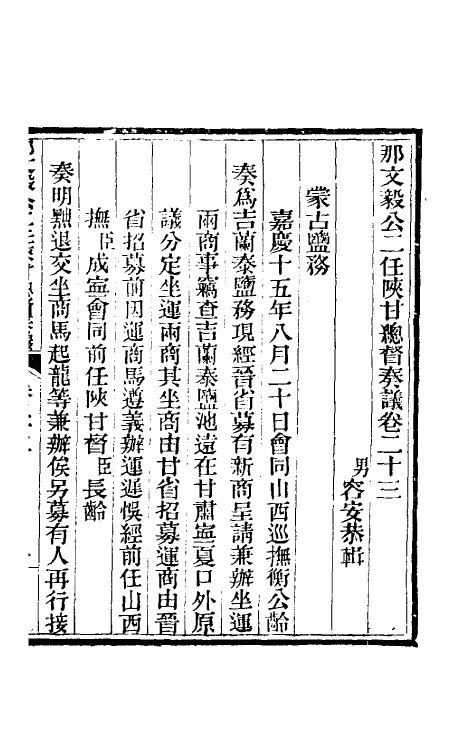 那文毅公二任陝甘總督奏議卷二十三
男容安恭輯
蒙古鹽務
嘉慶十五年八月二十日會同山西巡撫衡公齡
奏爲吉蘭泰鹽務現經晉省募有新商呈請兼辦坐運
兩商事竊查吉蘭泰鹽池遠在甘肅寧夏口外原
議分定坐運兩商其坐商由甘省招募運商由晉
省招募前因運商馬遵義辦運遲悞經前任山西
撫臣成寧會同前任陝甘督臣長齡
奏明黜退交坐商馬起龍等兼辦俟另募有人再行接